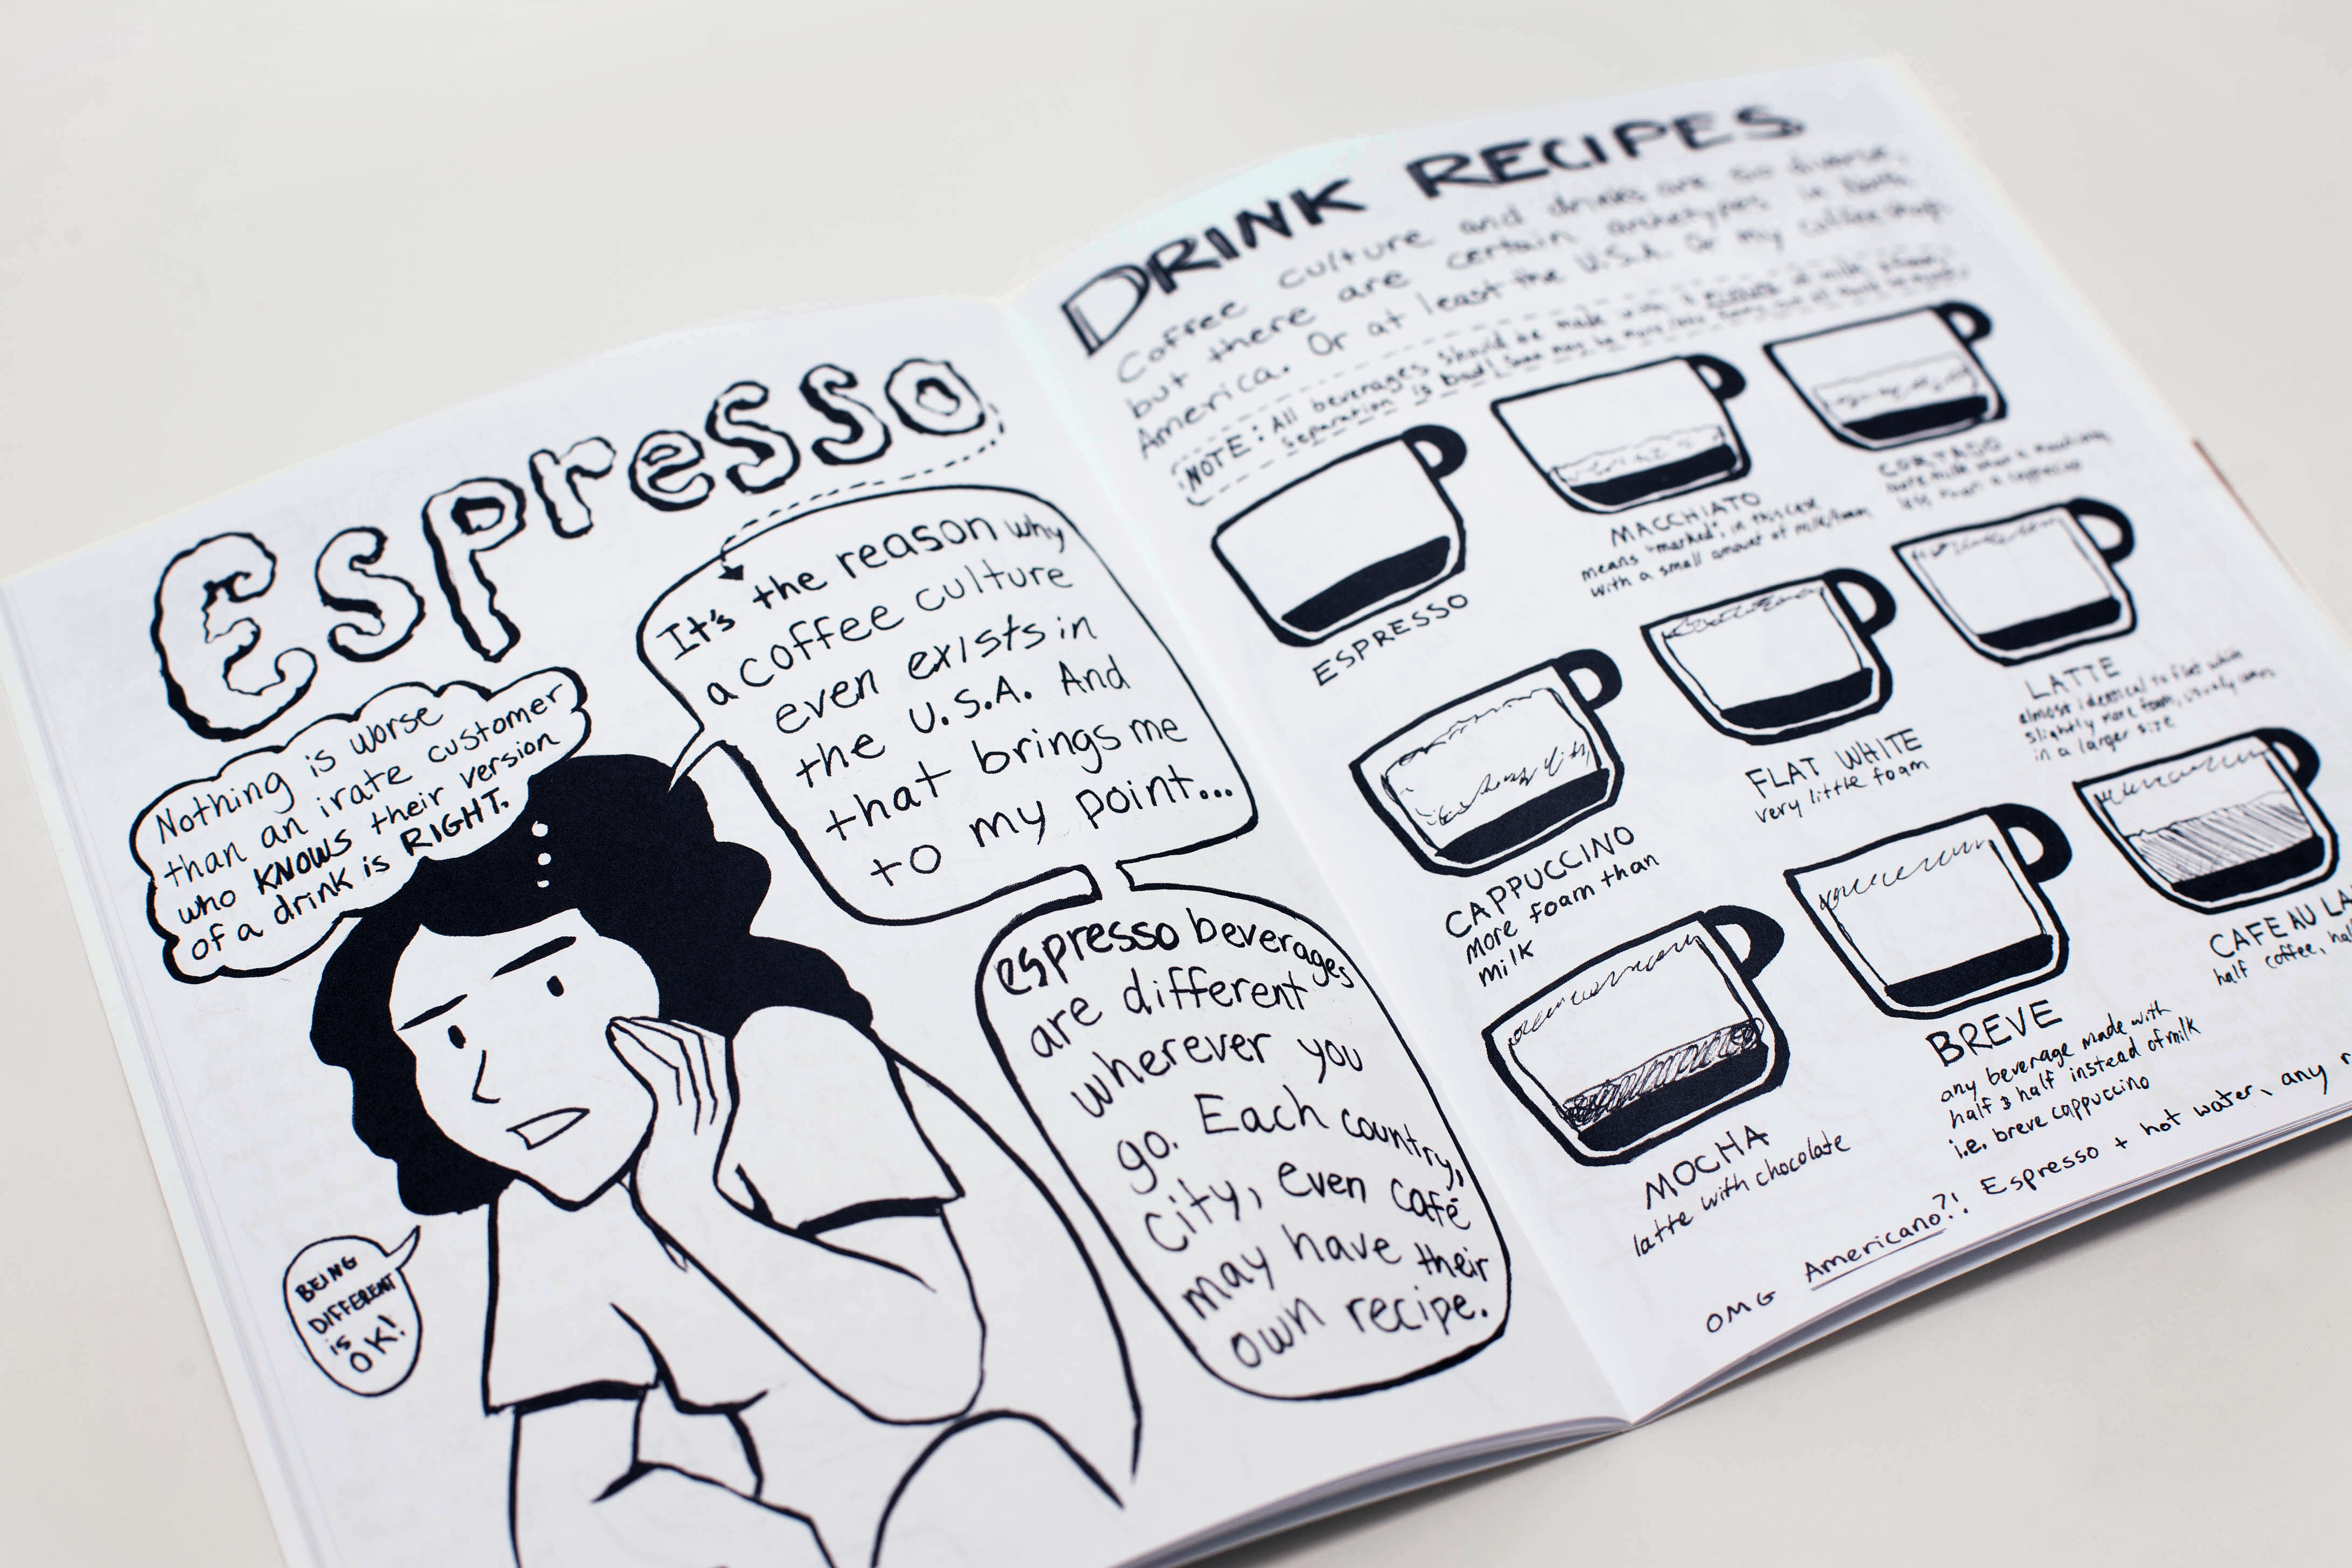 Espresso
It's the reason why
a coffee culture
even exists in
the U.S.A. And
that brings me
to my point...
Nothing is worse
than an irate customer
who KNOWS their version
of a drink is RIGHT.
espresso beverages
are different
wherever you
go. Each country,
city, even café
may have their
own recipe.
BEING
DIFFERENT
is
OK!
DRINK RECIPES
Coffee culture and drinks are so diverse,
but there are certain archetypes in North
America. Or at least the U.S.A. Or my coffee shop.
NOTE: All beverages should be made with a mixture of milk & foam.
Separation is bad! Some may be more/less foamy, but all must be
ESPRESSO
MACCHIATO
means "marked", in this case
with a small amount of milk/foam
CORTADO
more milk than a macchiato
less than a cappuccino
CAPPUCCINO
more foam than
milk
FLAT WHITE
very little foam
LATTE
almost identical to flat white
slightly more foam, usually comes
in a larger size
MOCHA
latte with chocolate
BREVE
any beverage made with
half & half instead of milk
i.e. breve cappuccino
CAFE AU LA
half coffee, hal
OMG Americano?! Espresso + hot water, any r